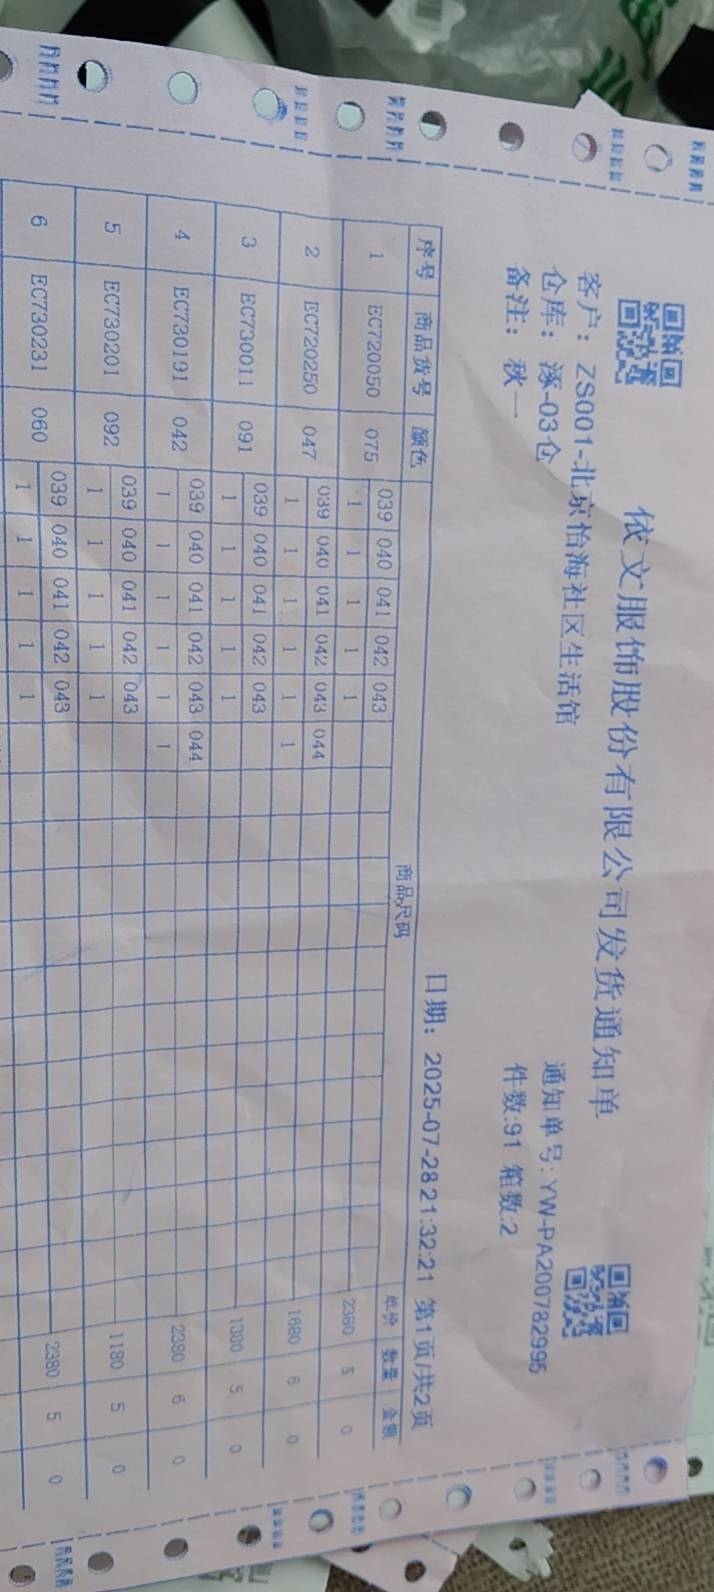 依文服饰股份有限公司发货通知单
客户：ZS001-北京怡海社区生活馆
通知单号:YW-PA200782995
仓库：涿-03仓
件数:91 箱数:2
备注：秋一
日期：2025-07-28 21:32:21 第1页/共2页
序号 商品货号 颜色 商品尺码 单价 数量 金额
039 040 041 042 043
1 EC720050 075 1 1 1 1 1 2380 5 0
039 040 041 042 043 044
2 EC720250 047 1 1 1 1 1 1 1680 6 0
039 040 041 042 043
3 EC730011 091 1 1 1 1 1 1380 5 0
039 040 041 042 043 044
4 EC730191 042 1 1 1 1 1 1 2380 6 0
039 040 041 042 043
5 EC730201 092 1 1 1 1 1 1180 5 0
039 040 041 042 043
6 EC730231 060 1 1 1 1 1 2380 5 0